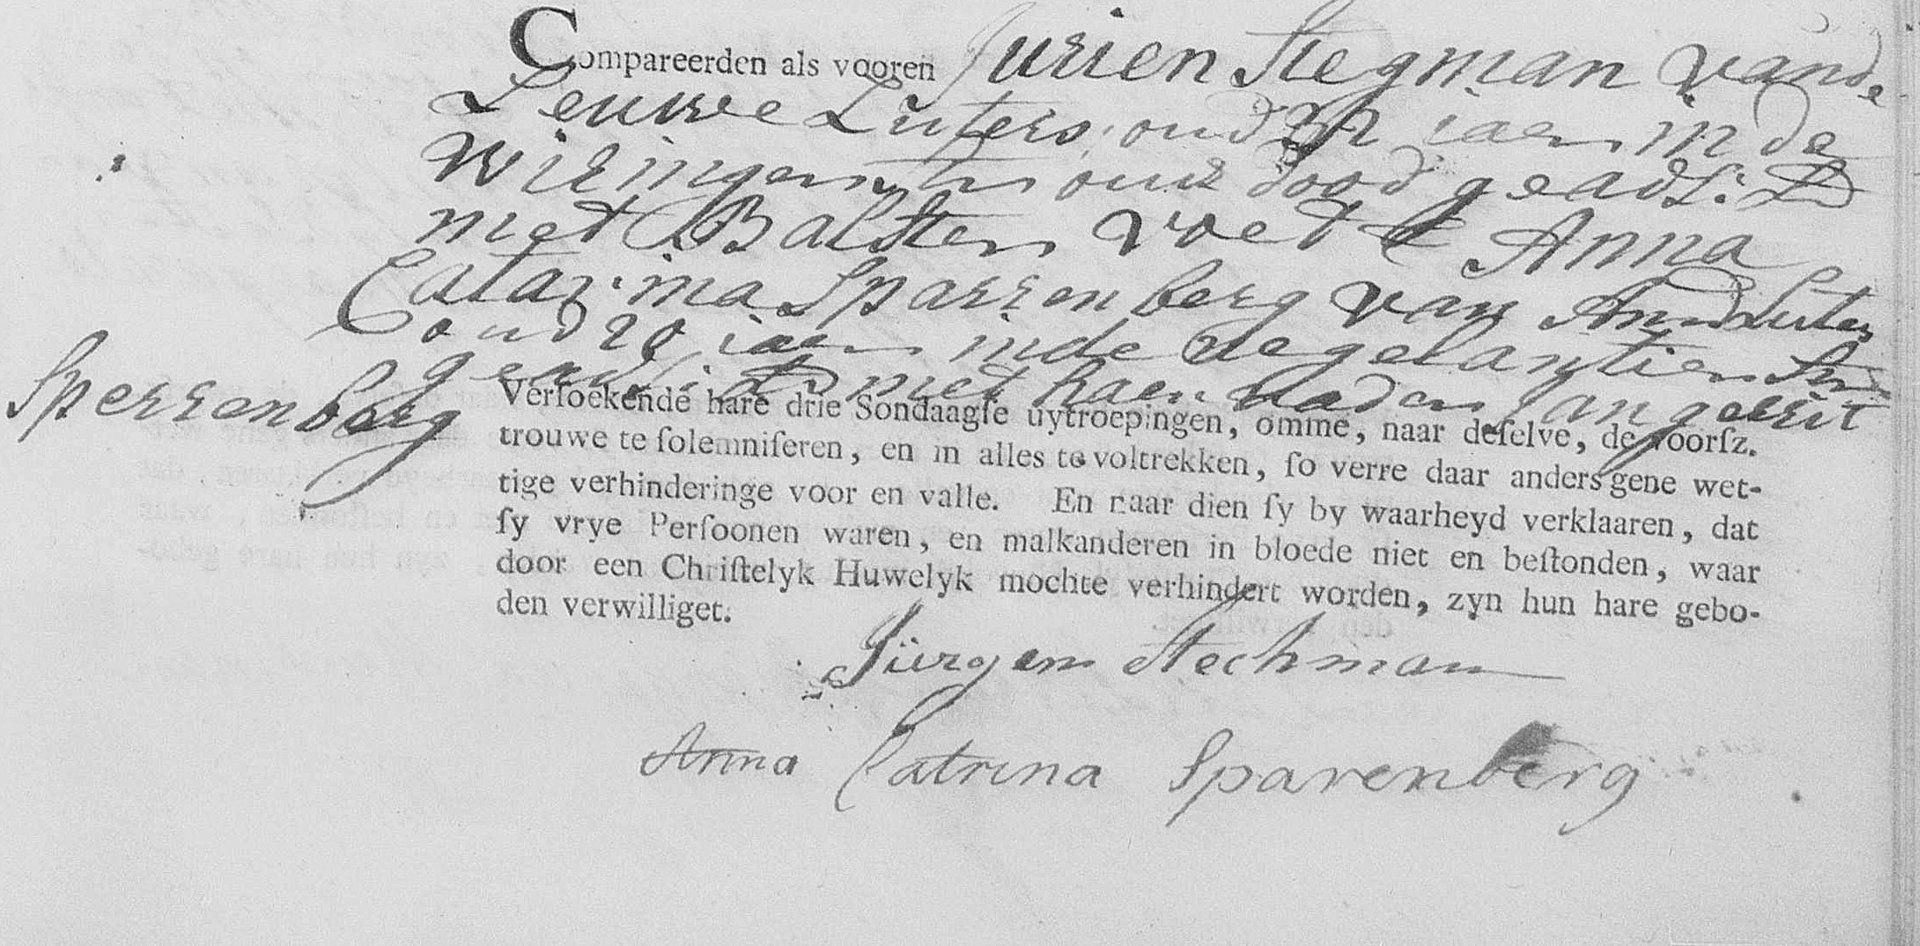 Compareerden als vooren Jurien Stegman vande
Leuwe Luters oud iaer in de
ouws dood geadst: D
met Balsten voet & Anna
Catarina Sparrenberg van Amd Luters
oud 20 iaer inde negelantiers
Sperrenberg
geads: ad met haer vader Jan gerrit
Versoekende hare drie Sondaagse uytroepingen, omme, naar deselve, de voorsz.
trouwe te solemniseren, en in alles te voltrekken, so verre daar anders gene wet-
tige verhinderinge voor en valle. En naar dien sy by waarheyd verklaaren, dat
sy vrye Persoonen waren, en malkanderen in bloede niet en bestonden, waar
door een Christelyk Huwelyk mochte verhindert worden, zyn hun hare gebo-
den verwilliget.
Jürgen Stechman
Anna Catrina Sparenberg